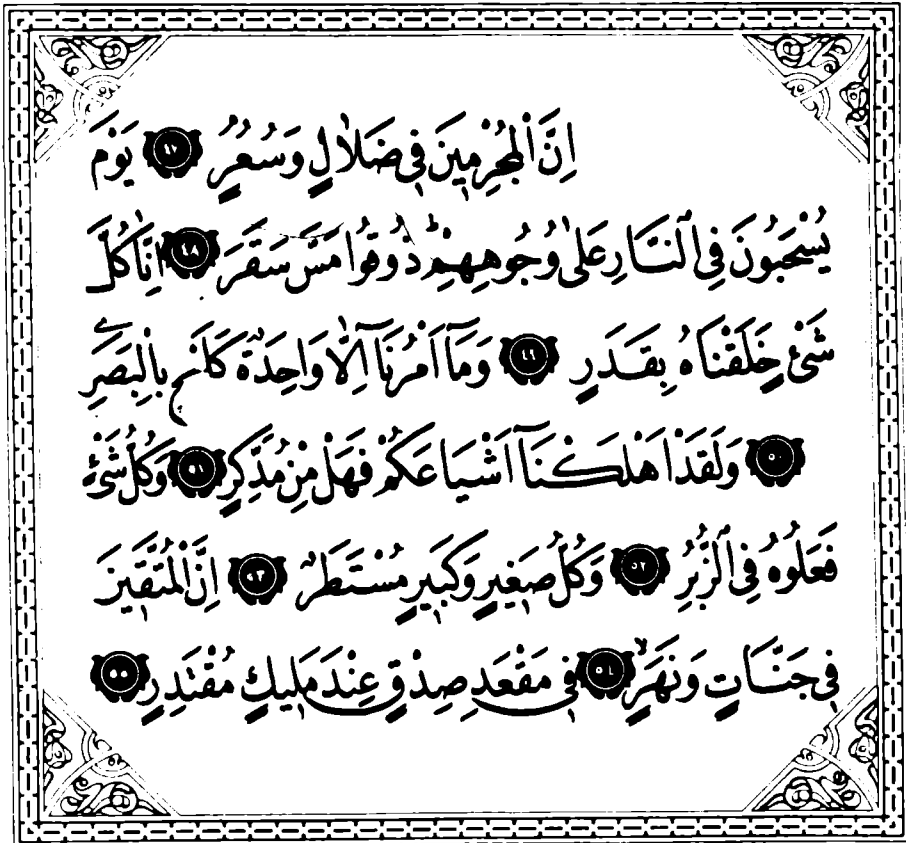 اِنَّ الْمُجْرِمِينَ فِي ضَلَالٍ وَسُعُرٍ ﴿٤٧﴾ يَوْمَ
يُسْحَبُونَ فِي النَّارِ عَلٰى وُجُوهِهِمْ ۜ ذُوقُوا مَسَّ سَقَرَ ﴿٤٨﴾ اِنَّا كُلَّ
شَيْءٍ خَلَقْنَاهُ بِقَدَرٍ ﴿٤٩﴾ وَمَآ اَمْرُنَآ اِلَّا وَاحِدَةٌ كَلَمْحٍ بِالْبَصَرِ
﴿٥٠﴾ وَلَقَدْ اَهْلَكْنَآ اَشْيَاعَكُمْ فَهَلْ مِنْ مُدَّكِرٍ ﴿٥١﴾ وَكُلُّ شَيْءٍ
فَعَلُوهُ فِي الزُّبُرِ ﴿٥٢﴾ وَكُلُّ صَغِيرٍ وَكَبِيرٍ مُسْتَطَرٌ ﴿٥٣﴾ اِنَّ الْمُتَّقِينَ
فِي جَنَّاتٍ وَنَهَرٍ ﴿٥٤﴾ فِي مَقْعَدِ صِدْقٍ عِنْدَ مَلِيكٍ مُقْتَدِرٍ ﴿٥٥﴾